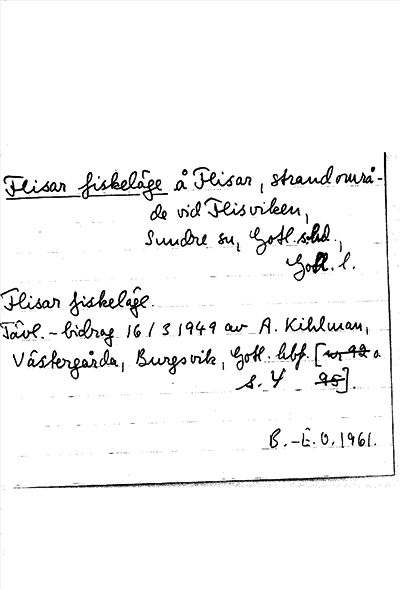 Flisar fiskeläge å Flisar, strandområ-
de vid Flisviken,
Sundre sn, Gotl. s. hd.,
Gotl. l.
Flisar fiskeläge.
Tävl.-bidrag 16/3 1949 av A. Kihlman,
Västergårda, Burgsvik, Gotl. hbf. [nr 92 o
s. 4 95].
B.-E.O. 1961.